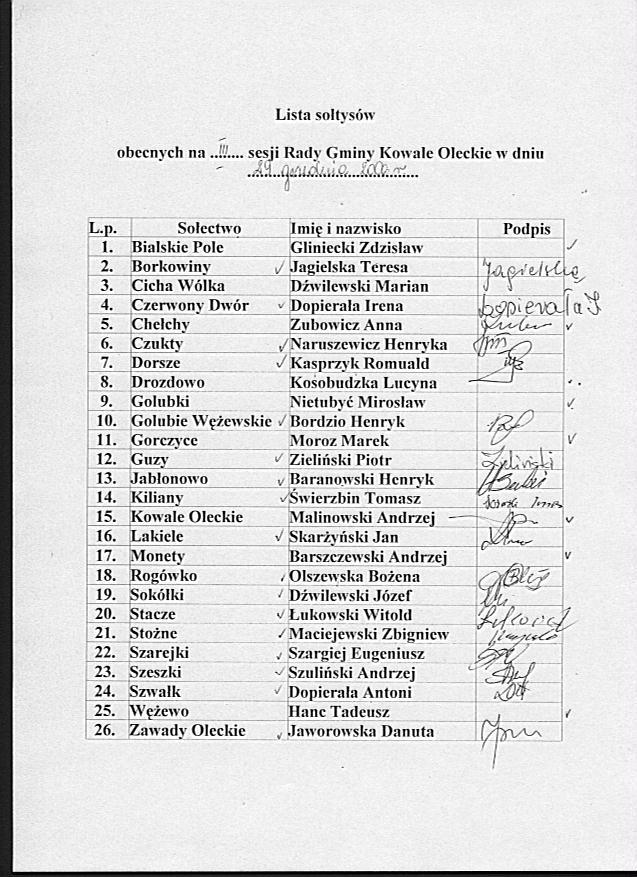 Lista sołtysów
obecnych na ...III.... sesji Rady Gminy Kowale Oleckie w dniu
29 grudnia
L.p. Sołectwo Imię i nazwisko Podpis
1. Bialskie Pole Gliniecki Zdzisław ✓
2. Borkowiny ✓ Jagielska Teresa Jagielska
3. Cicha Wólka Dźwilewski Marian
4. Czerwony Dwór ✓ Dopierała Irena Dopierała I
5. Chełchy Zubowicz Anna ✓
6. Czukty ✓ Naruszewicz Henryka
7. Dorsze ✓ Kasprzyk Romuald
8. Drozdowo Kosobudzka Lucyna
9. Golubki Nietubyć Mirosław ✓
10. Golubie Wężewskie ✓ Bordzio Henryk
11. Gorczyce Moroz Marek ✓
12. Guzy ✓ Zieliński Piotr Zieliński
13. Jabłonowo ✓ Baranowski Henryk
14. Kiliany ✓ Świerzbin Tomasz
15. Kowale Oleckie Malinowski Andrzej ✓
16. Lakiele ✓ Skarżyński Jan
17. Monety Barszczewski Andrzej ✓
18. Rogówko ✓ Olszewska Bożena
19. Sokółki ✓ Dźwilewski Józef
20. Stacze ✓ Łukowski Witold
21. Stożne ✓ Maciejewski Zbigniew
22. Szarejki ✓ Szargiej Eugeniusz
23. Szeszki ✓ Szuliński Andrzej
24. Szwałk ✓ Dopierała Antoni
25. Wężewo Hanc Tadeusz ✓
26. Zawady Oleckie ✓ Jaworowska Danuta